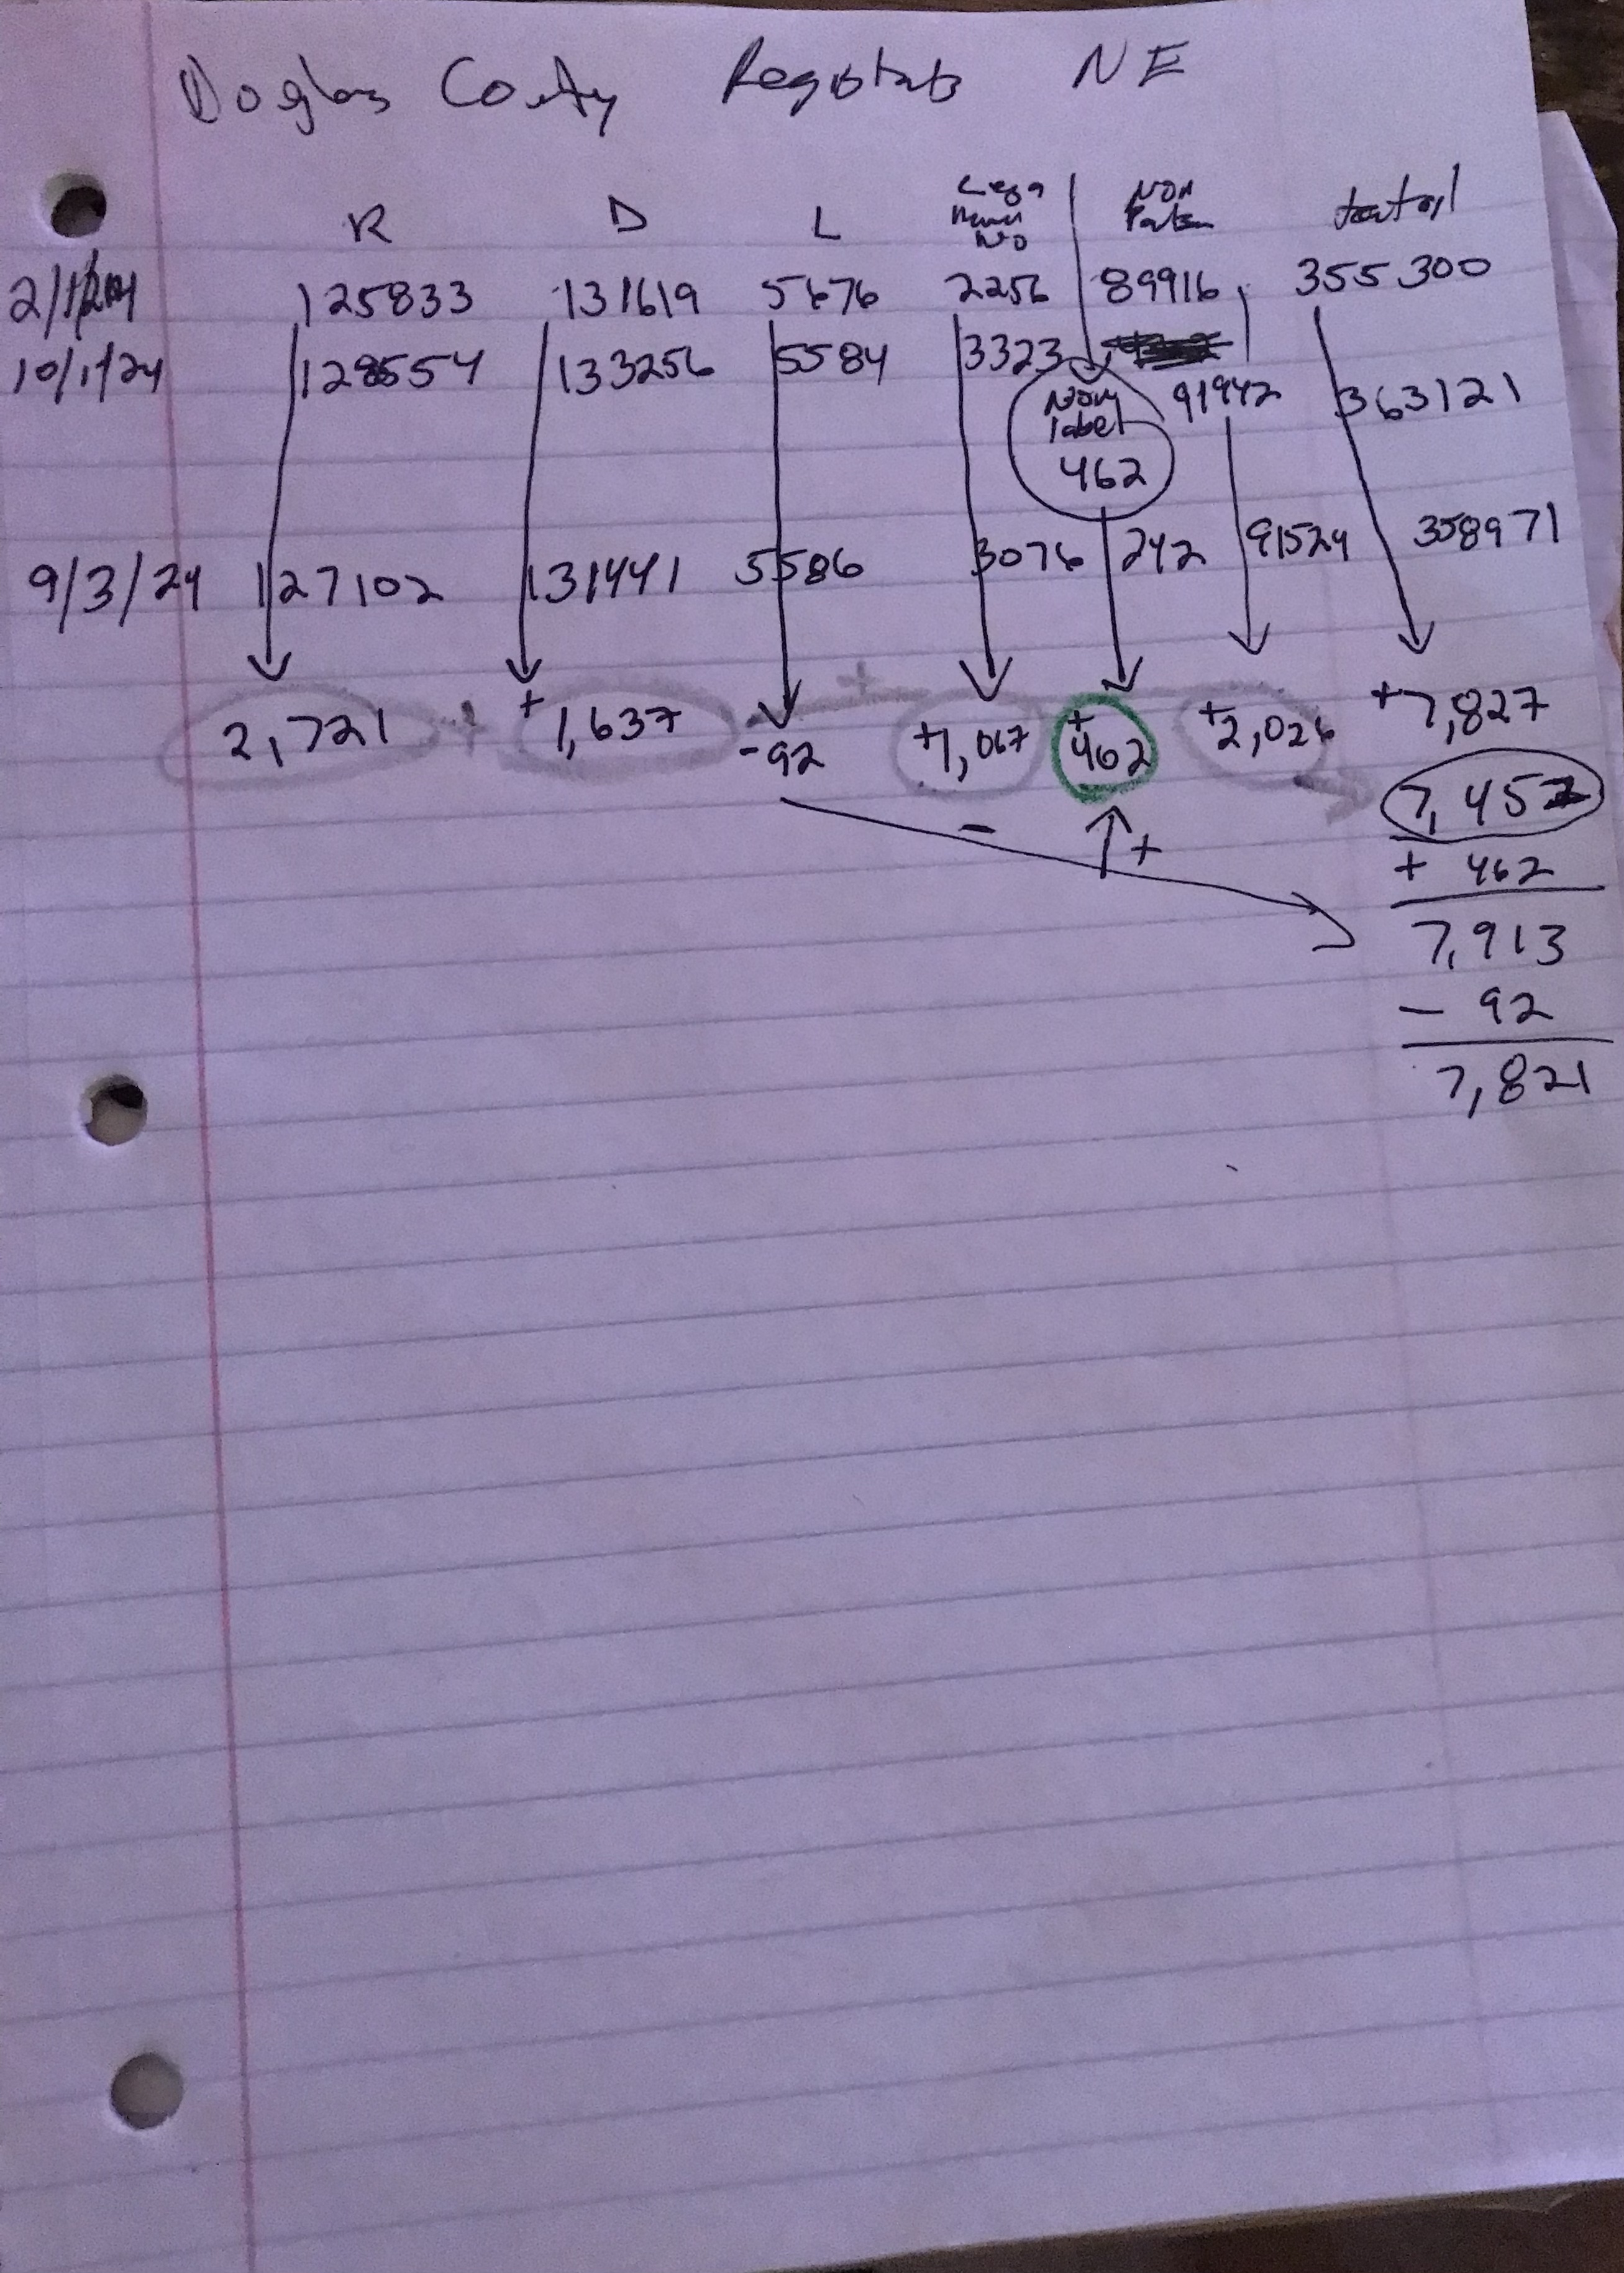 Douglas County Registrats NE
R D L Lega Non Partsn total
2/1/24 125833 131619 5676 2256 89916 355300
10/1/24 128554 133256 5584 3323 91942 363121
Non
label
462
9/3/24 127102 131441 5586 3076 242 91524 358971
+ +
2,721 +1,637 -92 +1,067 +462 +2,026 +7,827
7,452
- + + 462
7,913
- 92
7,821